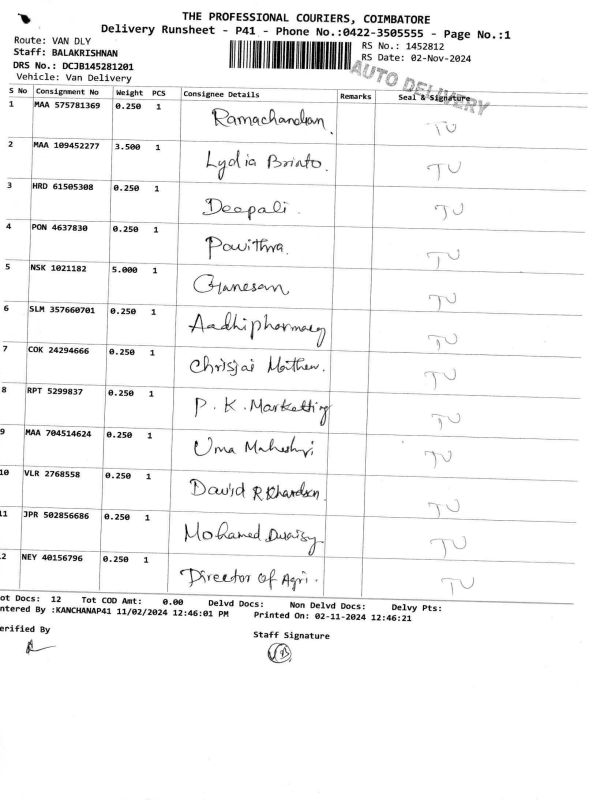 THE PROFESSIONAL COURIERS, COIMBATORE
Delivery Runsheet - P41 - Phone No.:0422-3505555 - Page No.:1
Route: VAN DLY RS No.: 1452812
Staff: BALAKRISHNAN RS Date: 02-Nov-2024
DRS No.: DCJB145281201
Vehicle: Van Delivery
AUTO DELIVERY
S No Consignment No Weight PCS Consignee Details Remarks Seal & Signature
1 MAA 575781369 0.250 1 Ramachandran. TU
2 MAA 109452277 3.500 1 Lydia Brinto. TU
3 HRD 61505308 0.250 1 Deepali. TU
4 PON 4637830 0.250 1 Pavithra. TU
5 NSK 1021182 5.000 1 Ganesan TU
6 SLM 357660701 0.250 1 Aadhipharmacy TU
7 COK 24294666 0.250 1 Chrisjai Mathew. TU
8 RPT 5299837 0.250 1 P. K. Marketting TU
9 MAA 704514624 0.250 1 Uma Maheshwri TU
10 VLR 2768558 0.250 1 David Richardson. TU
11 JPR 502856686 0.250 1 Mohamed TU
.2 NEY 40156796 0.250 1 Director Of Agri. TU
ot Docs: 12 Tot COD Amt: 0.00 Delvd Docs: Non Delvd Docs: Delvy Pts:
ntered By :KANCHANAP41 11/02/2024 12:46:01 PM Printed On: 02-11-2024 12:46:21
erified By Staff Signature